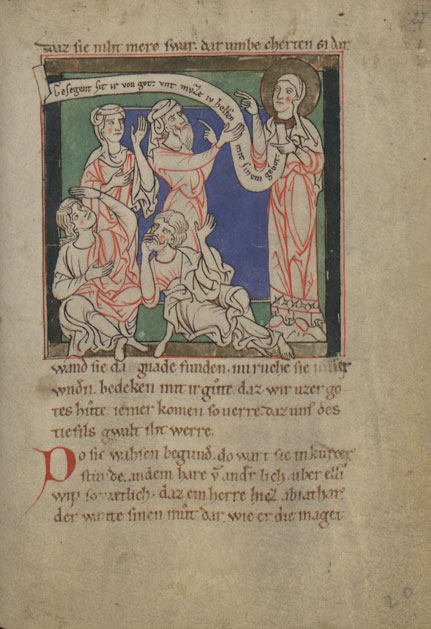 daz sie niht mere swar. dar umbe cherten si dar
Gesegent sit ir von gote vnt
iv helfen mit sinem
wand sie da gnade funden. nu ruche sie
bedeken mit ir gute. daz wir uzer go
tes hute iemer komen so uerre. daz uns des
tiefils gwalt iht werre.
Do sie wahsen begund. do wart sie in kurcer
stunde. an dem hare vn andr lich. uber elliv
wip so daz ein herre hiez abiathar.
der wante sinen mut dar. wie er die maget
27
20